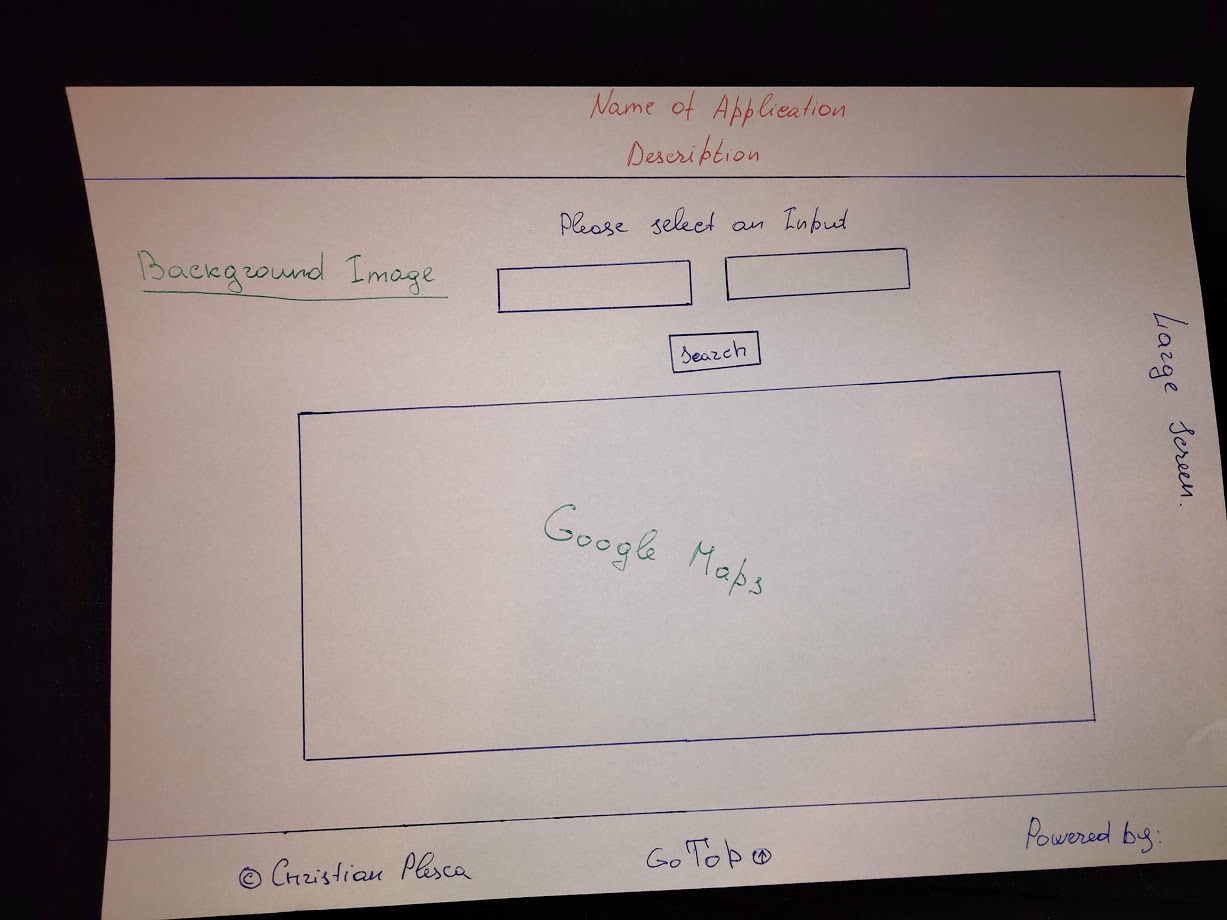 Name of Application
Description
Please select an Input
Background Image
Search
Large Screen.
Google Maps
© Christian Plesca
Go Top ↑
Powered by: